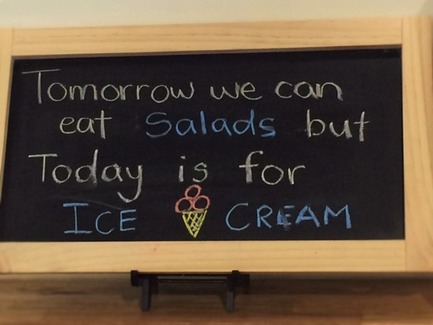 Tomorrow we can
eat Salads but
Today is for
ICE CREAM